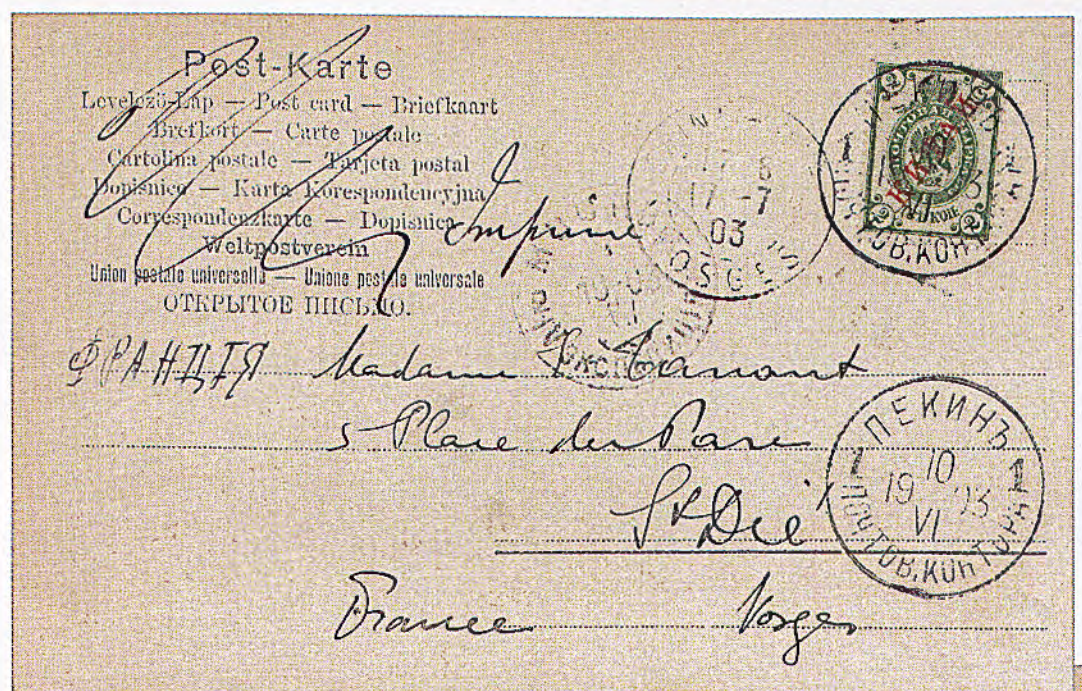 Post-Karte
Levelező-Lap — Post card — Briefkaart
Brefkort — Carte postale
Cartolina postale — Tarjeta postal
Dopisnice — Karta Korespondencyjna
Correspondenzkarte — Dopisnica
Weltpostverein
Union postale universelle — Unione postale universale
ОТКРЫТОЕ ПИСЬМО.
Imprimé
КИТАЙ
2 КОП 2
ПОЧТОВ. КОНТОРА
17 -7
03
VOSGES
ФРАНЦІЯ Madame
5 Place du Parc
St Dié
France Vosges
ПЕКИНЪ
10
19 03
VI
1 ПОЧТОВ. КОНТОРА 1